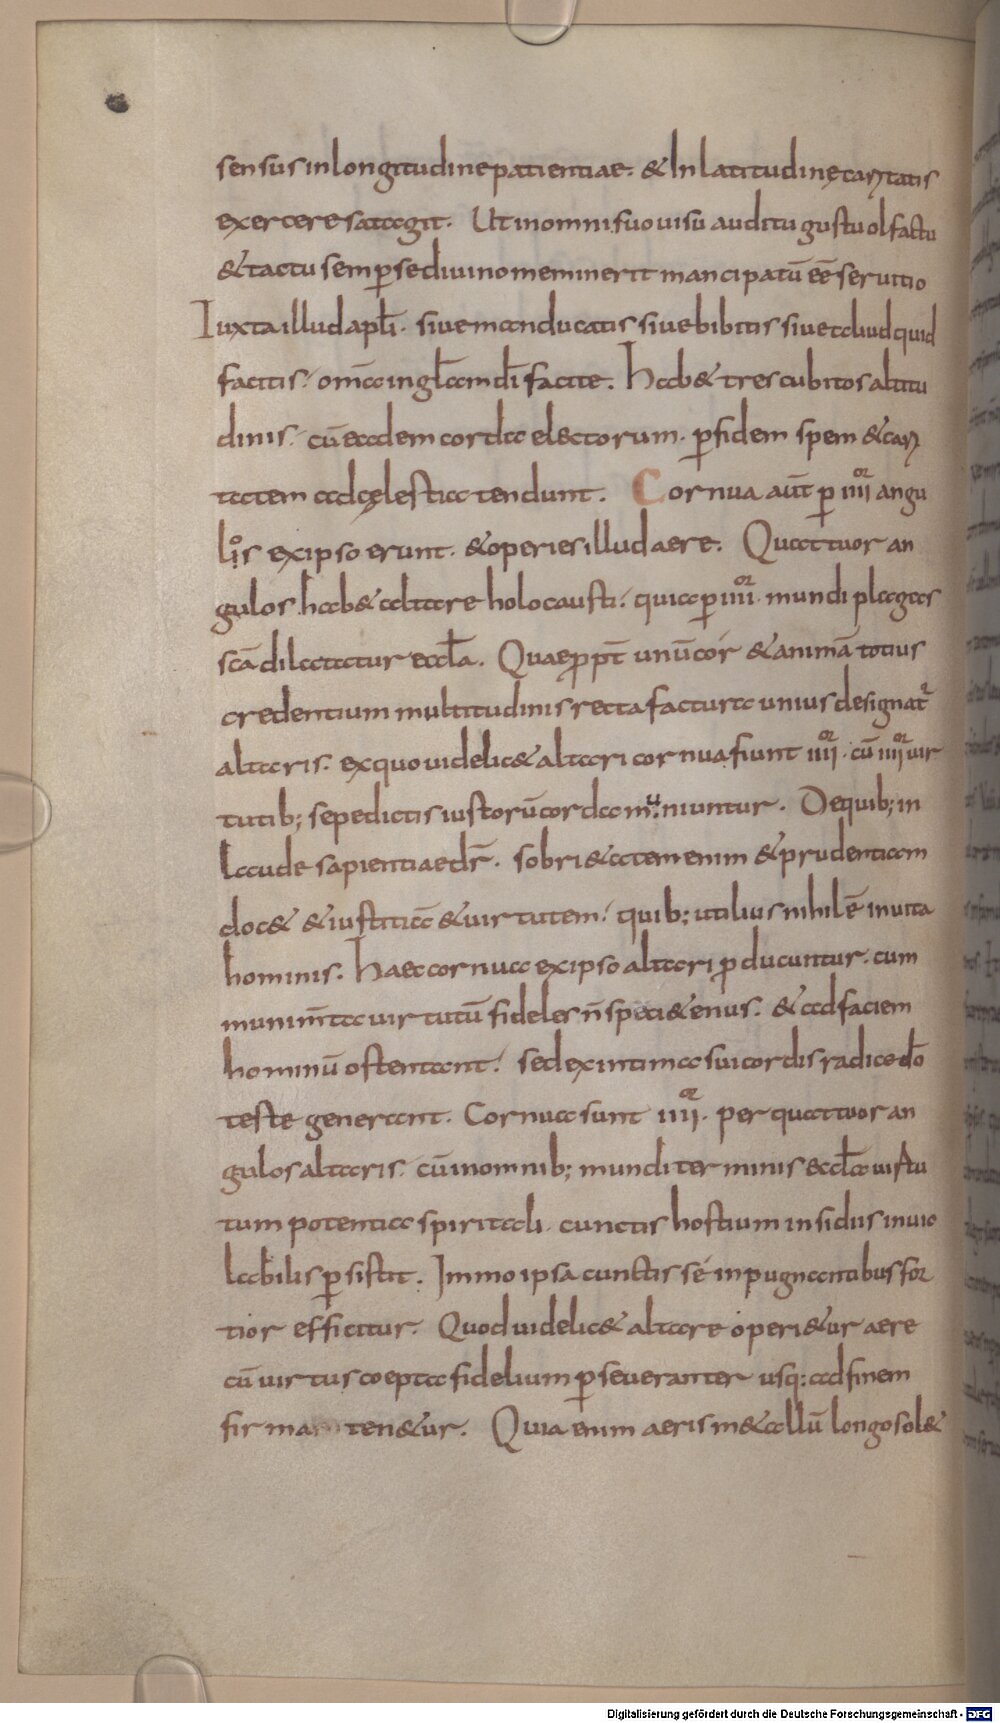 sensus in longitudine patientiae. & In latitudinę carytatis
exercere satagit. Ut in omni suo uisu auditu gustu olfactu
& tactu semp̄ se diuino meminerit mancipatū eē seruitio
Iuxta illud apl̄i. siue manducatis siue bibitis siue aliud quid
facitis. om̄a in gl̄am dī facite. Hab& tres cubitos altitu
dinis. cū eadem corda electorum. p̄ fidem spem & cary
tatem ad cęlestia tendunt. Cornua aūt p̄ iiii or angu
lios ex ipso erunt. & operies illud aere. Quattuor an
gulos hab& altare holocausti. qui a p̄ iiii or. mundi plagas
scā dilatatur eccl̄a. Quae pp̄t unū cór & animā totius
credentium multitudinis recta factura unius designat̄
altaris. ex quo uidelic& altari cornua fiunt iiii or. cū iiii or uir
tutib; sepe dictis iustorū corda muniuntur. De quib; in
laude sapientiae dr̄. sobri&atem enim & prudentiam
doc& & iustitiā & uirtutem. quib; utilius nihil ē in uita
hominis. Haec cornua ex ipso altari p̄ducuntur. cum
munim̄ta uirtutū fideles n̄ speci&enus. & ad faciem
hominū ostentant. sed ex intima sui cordis radice dō
teste generant. Cornua sunt iiii or. per quattuor an
gulos altaris. cū in omnib; mundi terminis eccl̄a uirtu
tum potentia spiritali. cunctis hostium insidiis inuio
labilis p̄sistit. Immo ipsa cunctis sé inpugnantibus for
tior efficitur. Quod uidelic& altare operi&ur aere
cū uirtus coepta fidelium p̄seueranter usq; ad finem
firma ten&ur. Quia enim aeris m&allū longo sol&
Digitalisierung gefördert durch die Deutsche Forschungsgemeinschaft - DFG